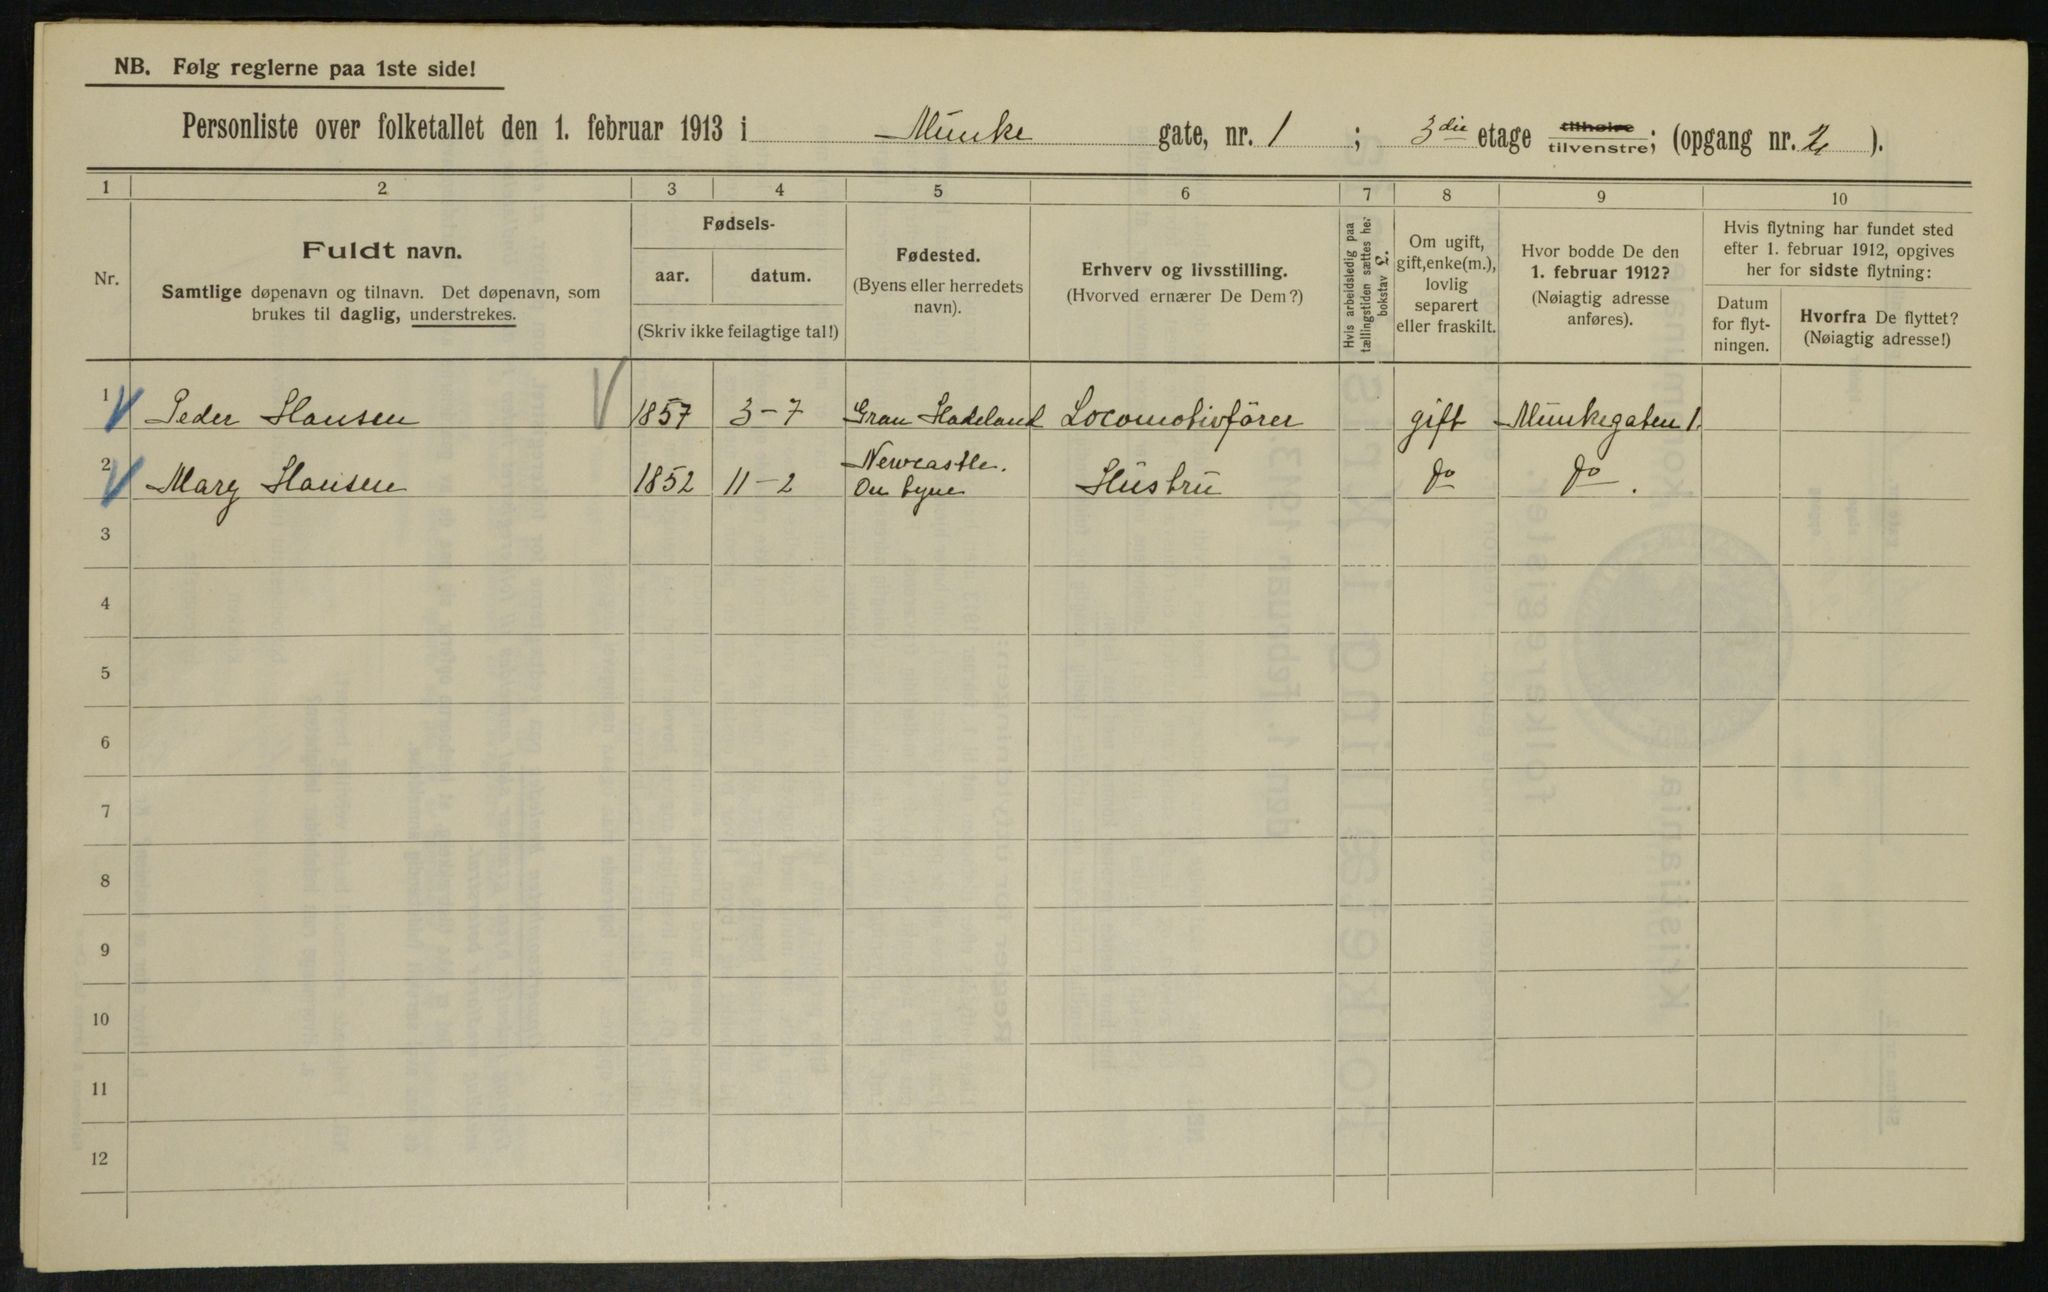 NB. Følg reglerne paa 1ste side!
Personliste over folketallet den 1. februar 1913 i Munke gate, nr. 1 ; 3die etage tilhøire tilvenstre; (opgang nr. 2 ).
1 2 3 4 5 6 7 8 9 10
Nr.
Fuldt navn.
Samtlige døpenavn og tilnavn. Det døpenavn, som
brukes til daglig, understrekes.
Fødsels-
aar. datum.
(Skriv ikke feilagtige tal!)
Fødested.
(Byens eller herredets
navn).
Erhverv og livsstilling.
(Hvorved ernærer De Dem?)
Hvis arbeidsledig paa
tællingstiden sættes her
bokstav L.
Om ugift,
gift, enke(m.),
lovlig
separert
eller fraskilt.
Hvor bodde De den
1. februar 1912?
(Nøiagtig adresse
anføres).
Hvis flytning har fundet sted
efter 1. februar 1912, opgives
her for sidste flytning:
Datum
for flyt-
ningen.
Hvorfra De flyttet?
(Nøiagtig adresse!)
1 Peder Hansen 1857 3-7 Gran Hadeland Locomotivfører gift Munkegaten 1.
2 Mary Hansen 1852 11-2 Newcastle. On tyne Hustru do do.
3
4
5
6
7
8
9
10
11
12